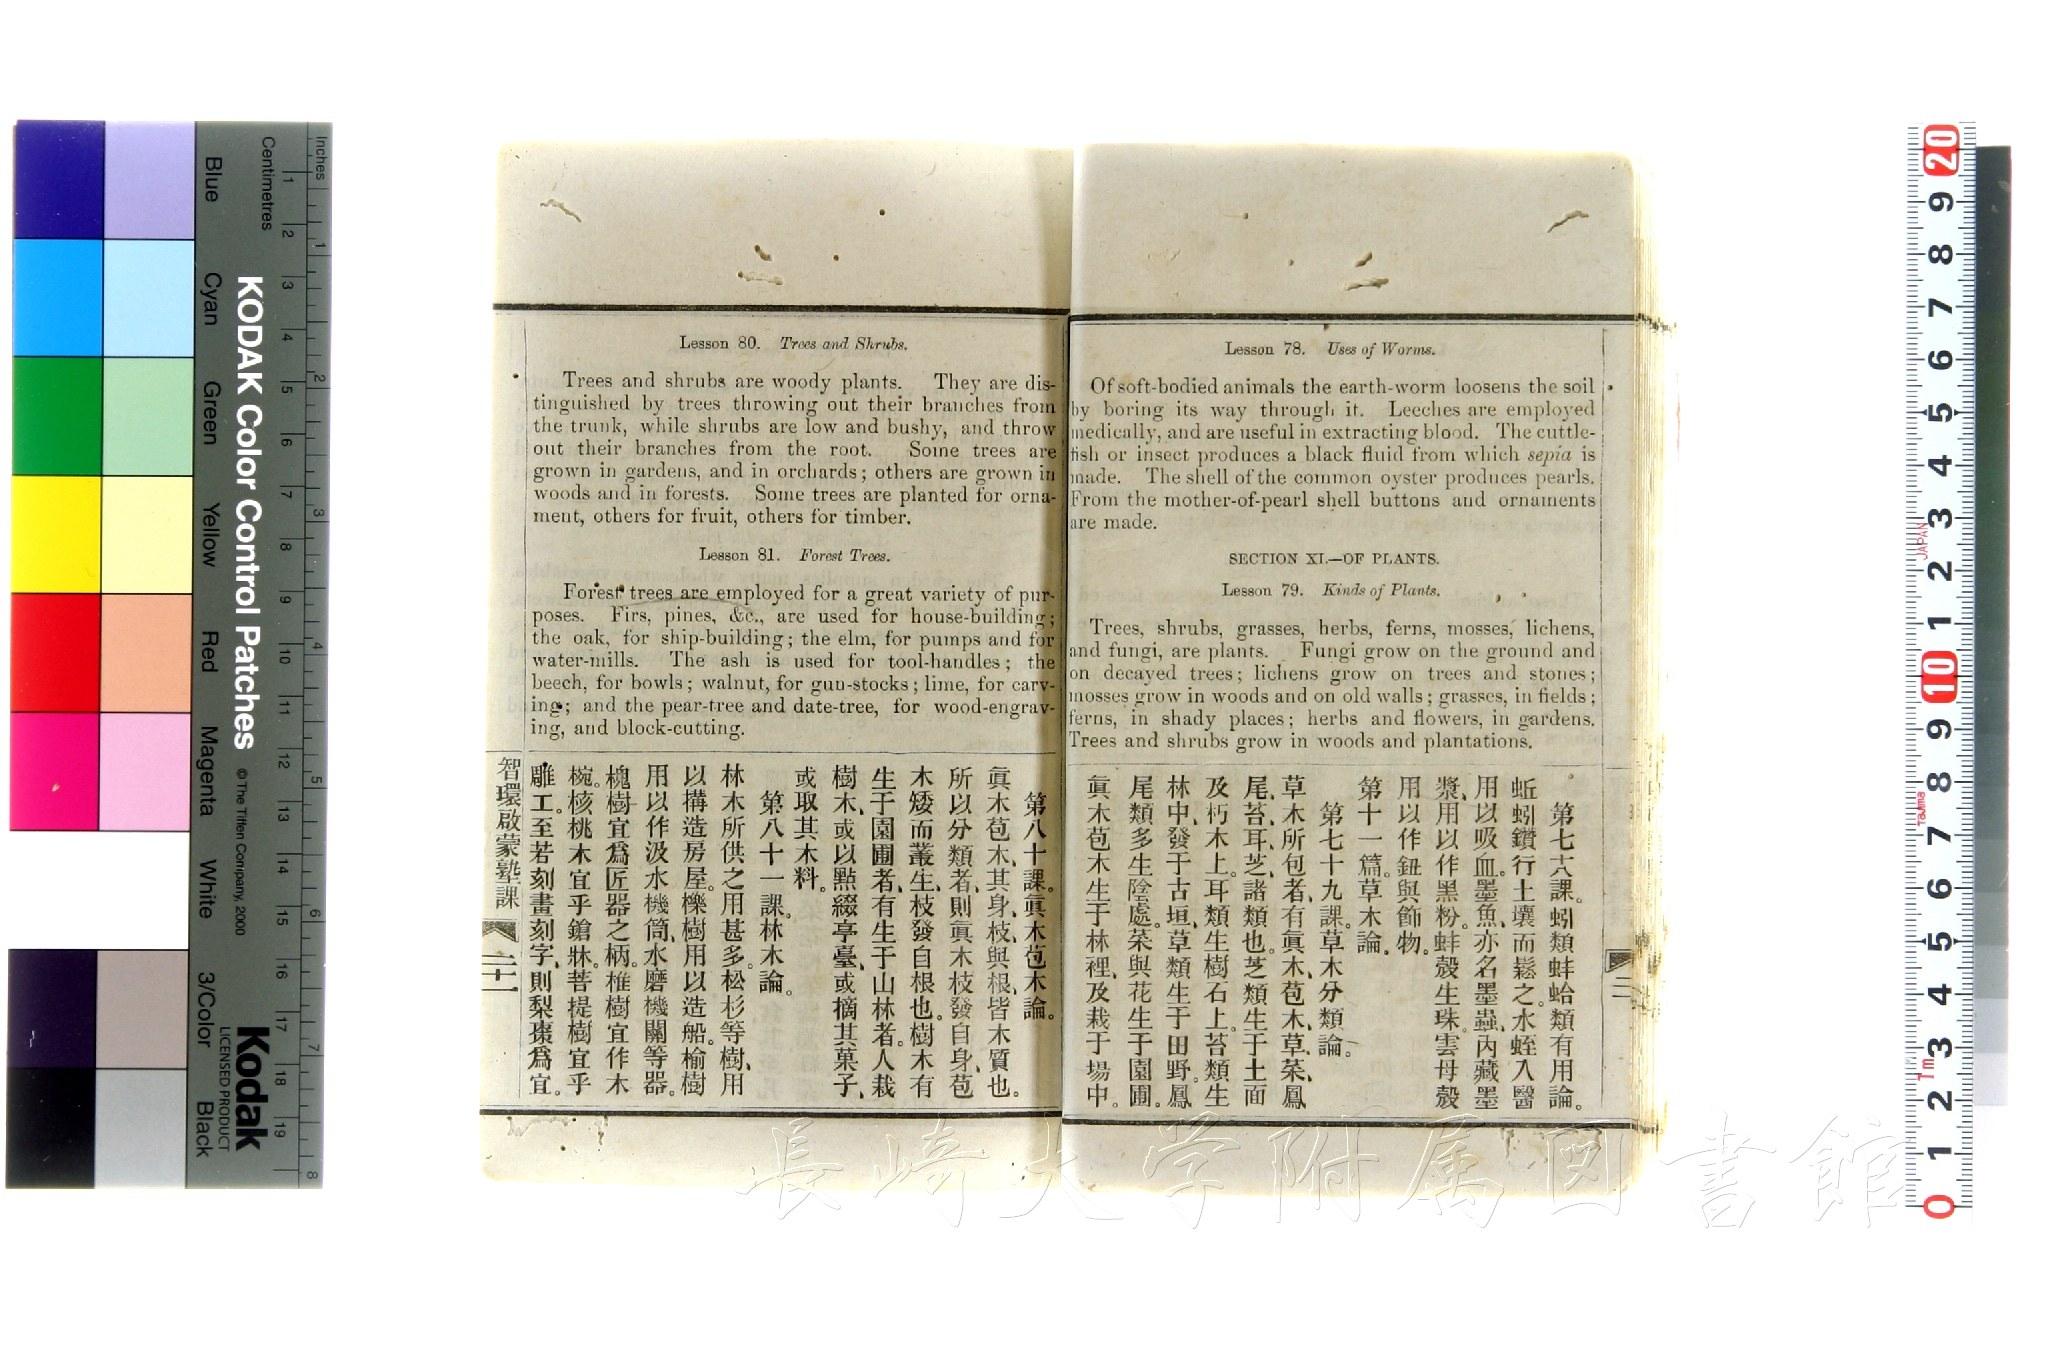 Lesson 78. Uses of Worms.
Of soft-bodied animals the earth-worm loosens the soil
by boring its way through it. Leeches are employed
medically, and are useful in extracting blood. The cuttle-
fish or insect produces a black fluid from which sepia is
made. The shell of the common oyster produces pearls.
From the mother-of-pearl shell buttons and ornaments
are made.
SECTION XI.—OF PLANTS.
Lesson 79. Kinds of Plants.
Trees, shrubs, grasses, herbs, ferns, mosses, lichens,
and fungi, are plants. Fungi grow on the ground and
on decayed trees; lichens grow on trees and stones;
mosses grow in woods and on old walls; grasses, in fields;
ferns, in shady places; herbs and flowers, in gardens.
Trees and shrubs grow in woods and plantations.
第七十八課。蚓類蚌蛤類有用論。
蚯蚓鑽行土壤而鬆之。水蛭入醫
用以吸血。墨魚、亦名墨蟲、內藏墨
漿、用以作黑粉。蚌殼生珠。雲母殼
用以作鈕與飾物。
第十一篇。草木論。
第七十九課。草木分類論。
草木所包者、有眞木、苞木、草、菜、鳳
尾、苔、耳、芝、諸類也。芝類生于土面
及朽木上。耳類生樹石上。苔類生
林中、發于古垣、草類生于田野。鳳
尾類多生陰處。菜與花生于園圃。
眞木苞木生于林裡、及栽于場中。
Lesson 80. Trees and Shrubs.
Trees and shrubs are woody plants. They are dis-
tinguished by trees throwing out their branches from
the trunk, while shrubs are low and bushy, and throw
out their branches from the root. Some trees are
grown in gardens, and in orchards; others are grown in
woods and in forests. Some trees are planted for orna-
ment, others for fruit, others for timber.
Lesson 81. Forest Trees.
Forest trees are employed for a great variety of pur-
poses. Firs, pines, &c., are used for house-building;
the oak, for ship-building; the elm, for pumps and for
water-mills. The ash is used for tool-handles; the
beech, for bowls; walnut, for gun-stocks; lime, for carv-
ing; and the pear-tree and date-tree, for wood-engrav-
ing, and block-cutting.
第八十課。眞木苞木論。
眞木苞木、其身、枝、與根、皆木質也。
所以分類者、則眞木枝發自身、苞
木矮而叢生、枝發自根也。樹木有
生于園圃者、有生于山林者。人栽
樹木、或以點綴亭臺、或摘其菓子、
或取其木料。
第八十一課。林木論。
林木所供之用甚多。松杉等樹、用
以搆造房屋。櫟樹用以造船。榆樹
用以作汲水機筒、水磨機關等器。
槐樹宜爲匠器之柄。椎樹宜作木
椀。核桃木宜乎鎗牀。菩提樹宜乎
雕工。至若刻畫刻字、則梨棗爲宜。
智環啟蒙塾課
二十一
KODAK Color Control Patches
© The Tiffen Company, 2000
Kodak
LICENSED PRODUCT
Inches
Centimetres
Blue
Cyan
Green
Yellow
Red
Magenta
White
3/Color
Black
1 2 3 4 5 6 7 8 9 10 11 12 13 14 15 16 17 18 19
1 2 3 4 5 6 7 8
20 9 8 7 6 5 4 3 2 1 10 9 8 7 6 5 4 3 2 1 0
JAPAN
Tajima
1m
長崎大学附属図書館